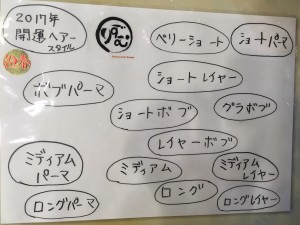 2017年
開運ヘアー
スタイル
りつむ
ベリーショート
ショートパーマ
ショートレイヤー
ボブパーマ
ショートボブ
グラボブ
レイヤーボブ
ミディアム
パーマ
ミディアム
ミディアム
レイヤー
ロングパーマ
ロング
ロングレイヤー